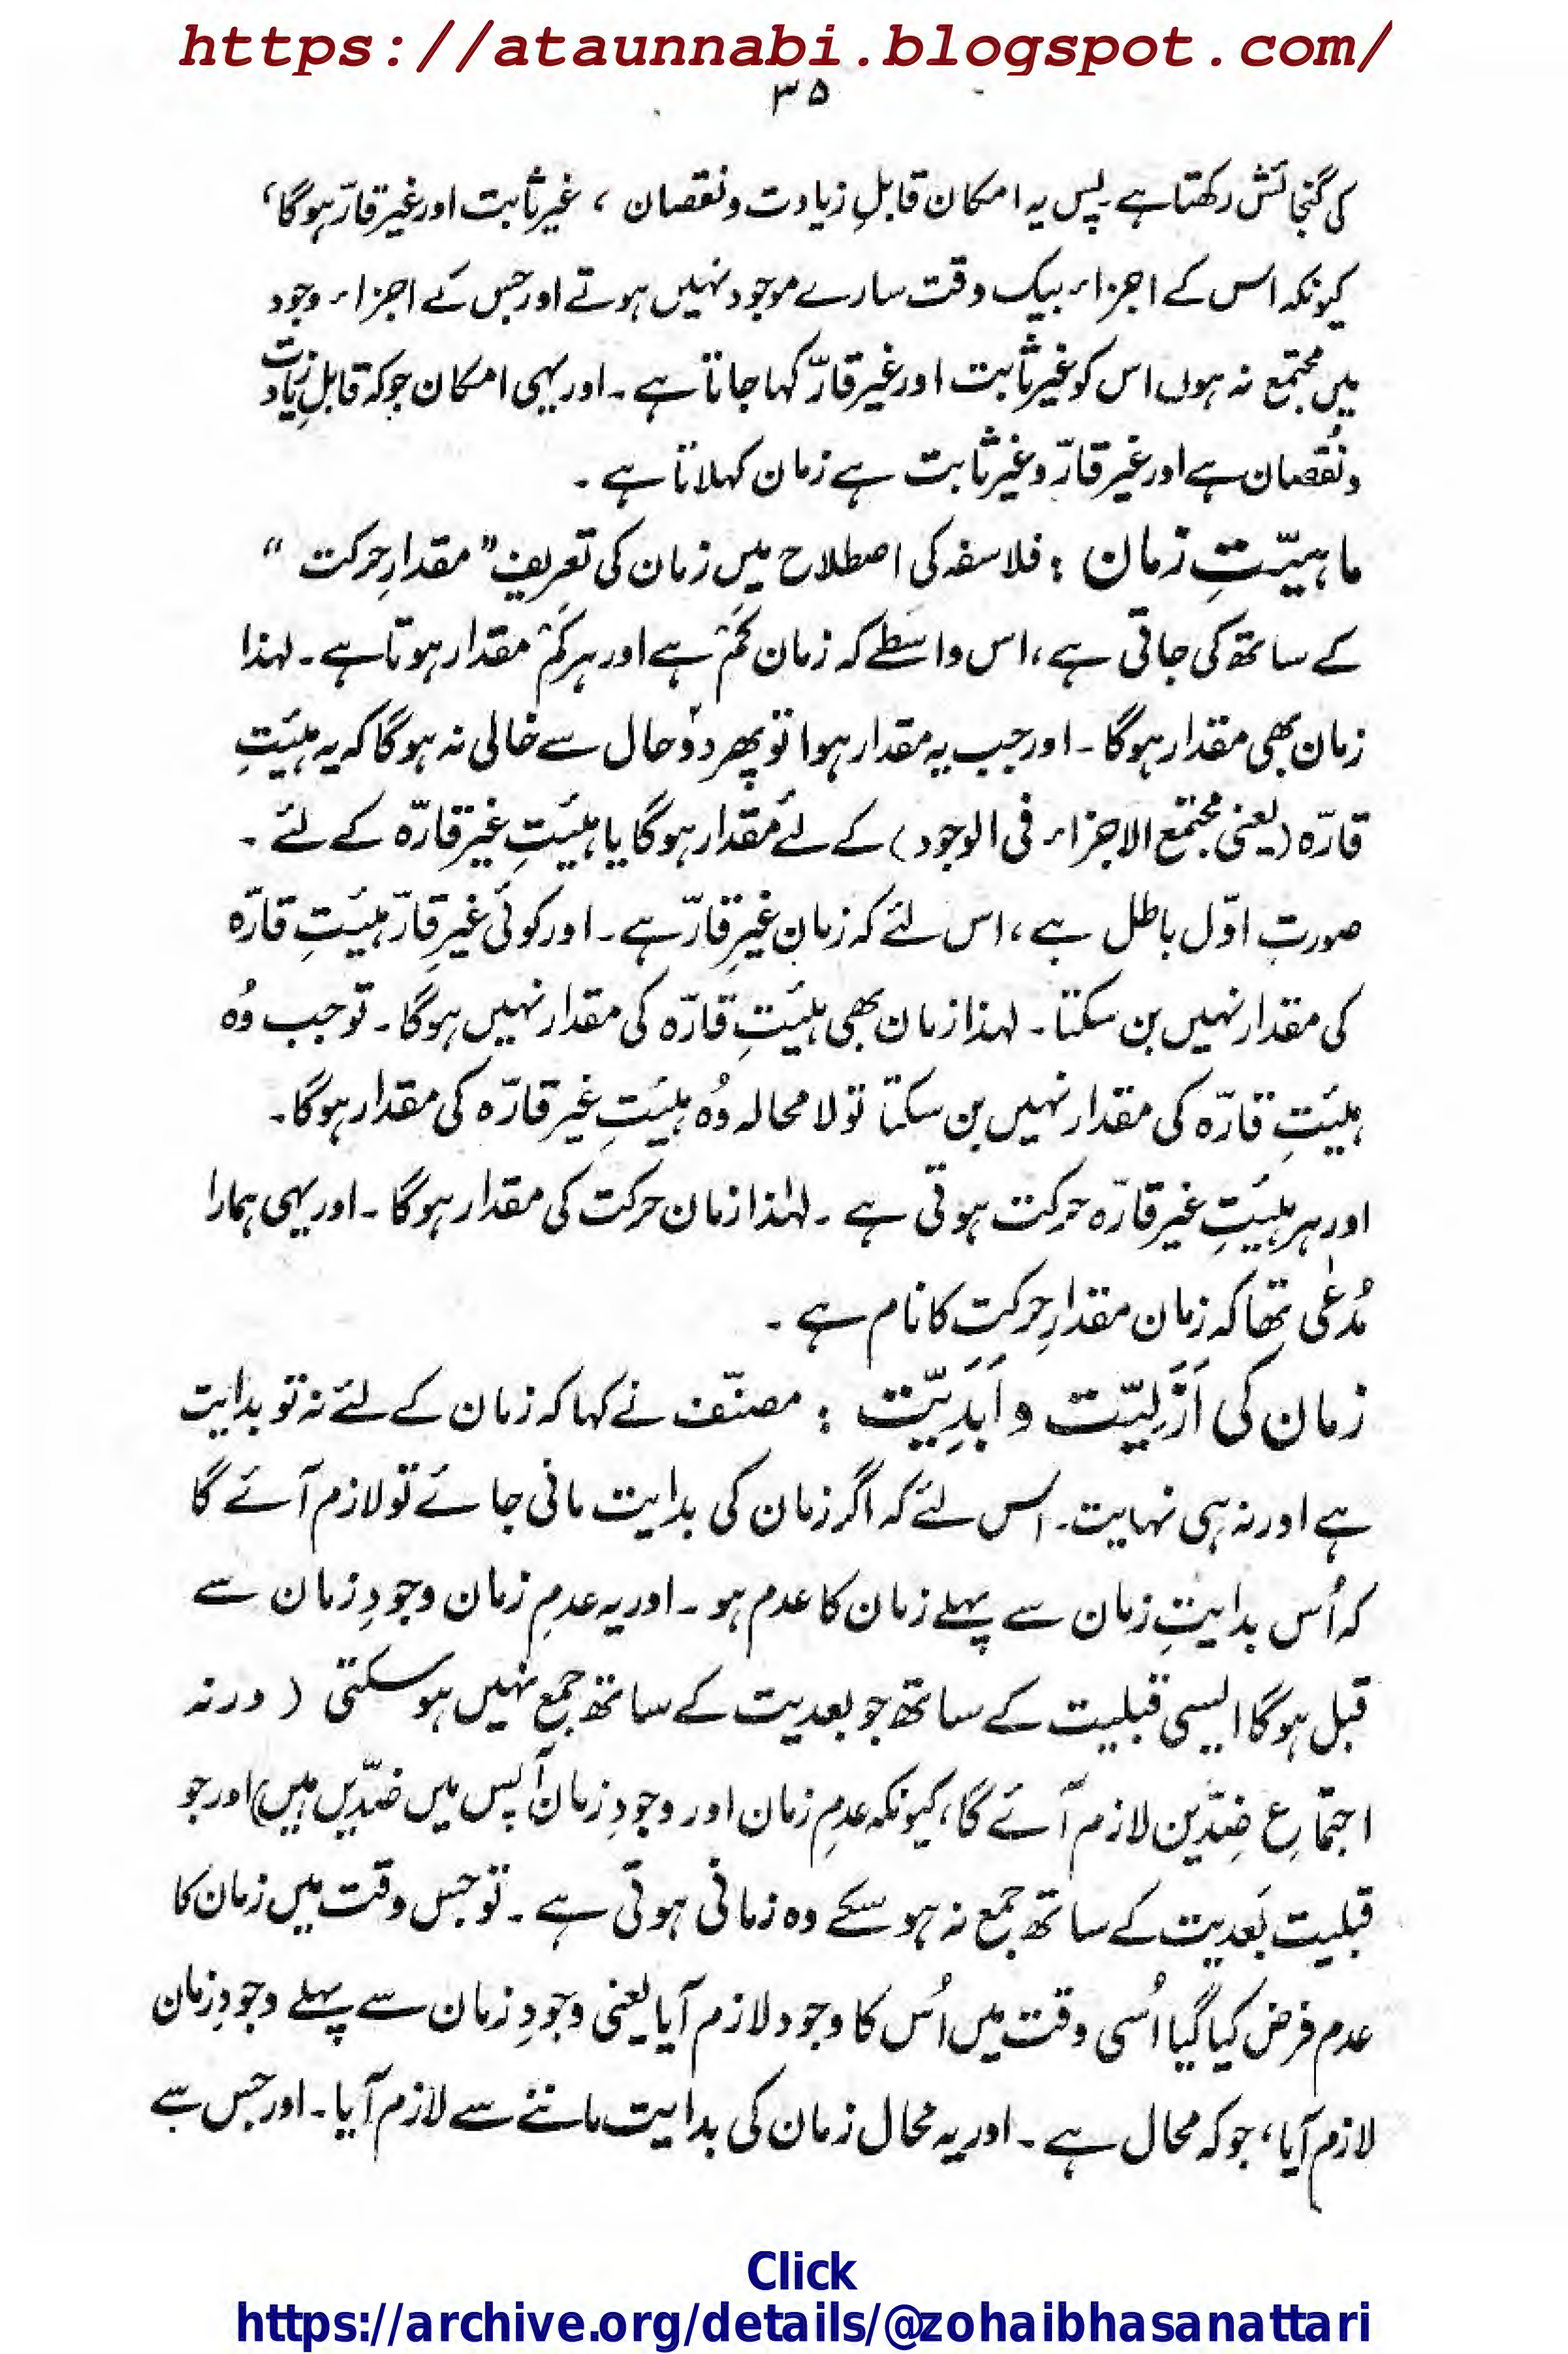 https://ataunnabi.blogspot.com/
۳۵
کی گنجائش رکھتا ہے۔ پس یہ امکان قابلِ زیادت و نقصان ، غیر ثابت اور غیر قارّ ہوگا،
کیونکہ اس کے اجزاء بیک وقت سارے موجود نہیں ہوتے اور جس کے اجزاء وجود
میں مجتمع نہ ہوں اس کو غیر ثابت اور غیر قارّ کہا جاتا ہے۔ اور یہی امکان جو کہ قابلِ زیادت
و نقصان ہے اور غیر قارّ و غیر ثابت ہے زمان کہلاتا ہے۔
ماہیّتِ زمان : فلاسفہ کی اصطلاح میں زمان کی تعریف ” مقدارِ حرکت “
کے ساتھ کی جاتی ہے، اس واسطے کہ زمان کَمْ ہے اور ہر کَمْ مقدار ہوتا ہے۔ لہذا
زمان بھی مقدار ہوگا۔ اور جب یہ مقدار ہوا تو پھر دوٗ حال سے خالی نہ ہوگا کہ یہ ہیئتِ
قارّہ (یعنی مجتمع الاجزاء فی الوجود) کے لئے مقدار ہوگا یا ہیئتِ غیر قارّہ کے لئے۔
صورتِ اوّل باطل ہے، اس لئے کہ زمان غیرِ قارّ ہے۔ اور کوئی غیرِ قارّ ہیئتِ قارّہ
کی مقدار نہیں بن سکتا۔ لہذا زمان بھی ہیئتِ قارّہ کی مقدار نہیں ہوگا۔ تو جب وُہ
ہیئتِ قارّہ کی مقدار نہیں بن سکتا تو لا محالہ وُہ ہیئتِ غیر قارّہ کی مقدار ہوگا۔
اور ہر ہیئتِ غیر قارّہ حرکت ہوتی ہے۔ لہٰذا زمان حرکت کی مقدار ہوگا۔ اور یہی ہمارا
مُدعٰی تھا کہ زمان مقدارِ حرکت کا نام ہے۔
زمان کی اَزَلِیّت و اَبَدِیّت : مصنّف نے کہا کہ زمان کے لئے نہ تو بدایت
ہے اور نہ ہی نہایت۔ اس لئے کہ اگر زمان کی بدایت مانی جائے تو لازم آئے گا
کہ اُس بدایتِ زمان سے پہلے زمان کا عدم ہو۔ اور یہ عدمِ زمان وجودِ زمان سے
قبل ہوگا ایسی قبلیت کے ساتھ جو بعدیت کے ساتھ جمع نہیں ہوسکتی ( ورنہ
اجتماعِ ضِدّین لازم آئے گا، کیونکہ عدمِ زمان اور وجودِ زمان آپس میں ضدّیں ہیں) اور جو
قبلیت بَعدیت کے ساتھ جمع نہ ہو سکے وہ زمانی ہوتی ہے۔ تو جس وقت میں زمان کا
عدم فرض کیا گیا اُسی وقت میں اُس کا وجود لازم آیا یعنی وجودِ زمان سے پہلے وجودِ زمان
لازم آیا، جو کہ محال ہے۔ اور یہ محال زمان کی بدایت ماننے سے لازم آیا۔ اور جس سے
Click
https://archive.org/details/@zohaibhasanattari